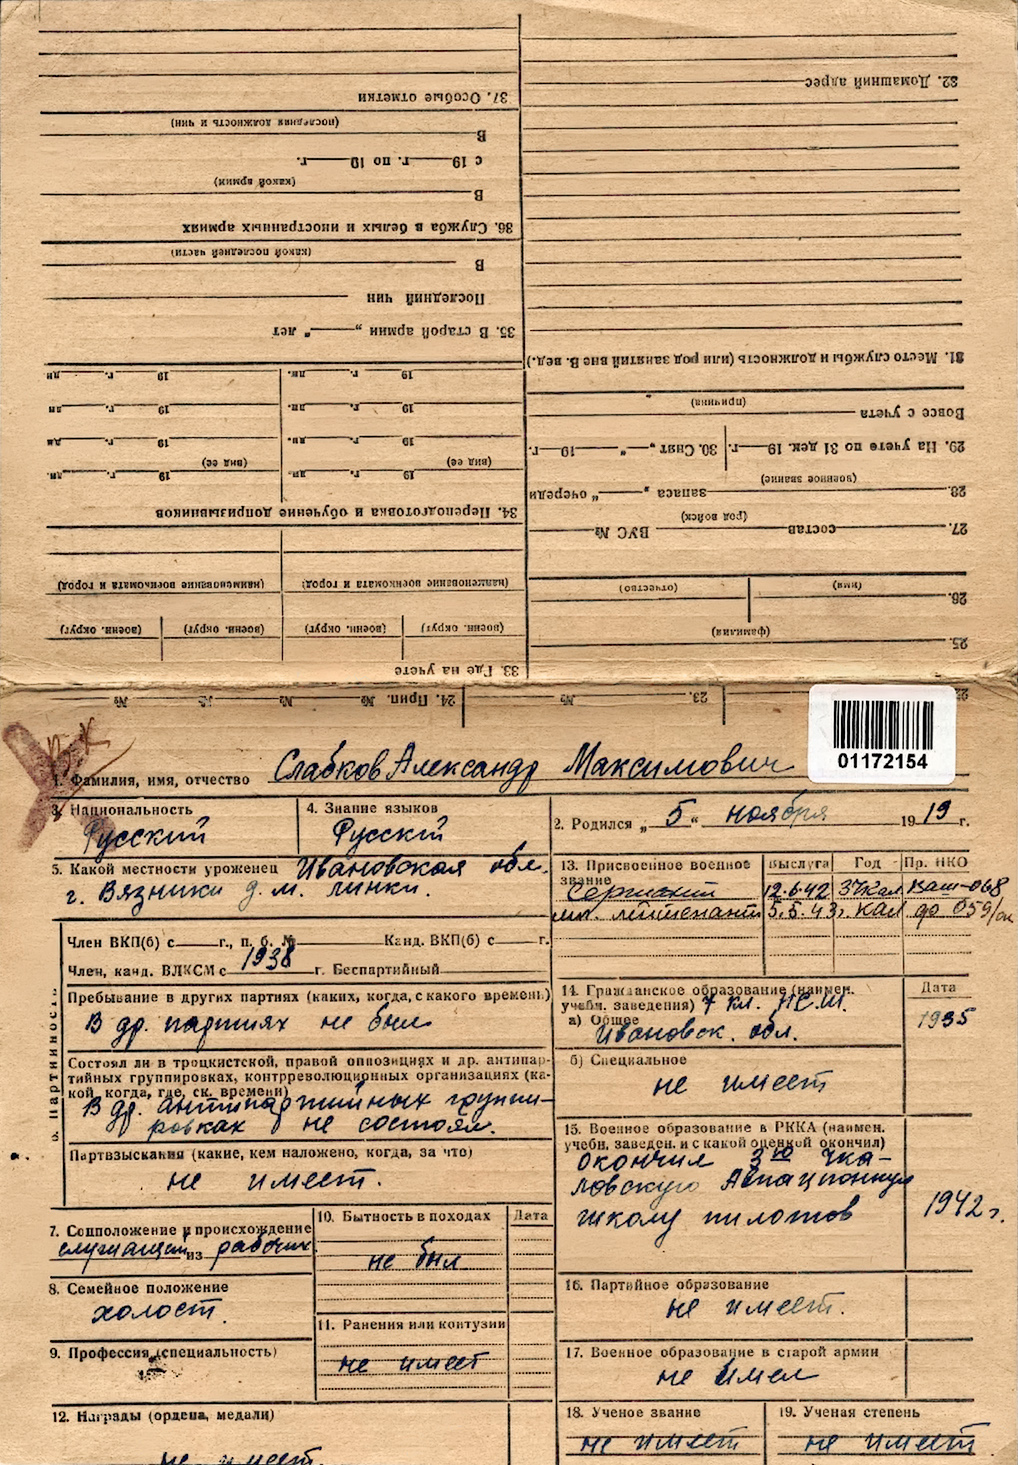 37. Особые отметки
(последняя должность и чин)
В
с 19 г. по 19 г.
(какой армии)
В
36. Служба в белых и иностранных армиях
(какой последней части)
В
Последний чин
35. В старой армии „ “ лет
19 г. дн. 19 г. дн.
19 г. дн. 19 г. дн.
19 г. дн. 19 г. дн.
(вид ее) (вид ее)
19 г. дн. 19 г. дн.
34. Переподготовка и обучение допризывников
(наименование военкомата и город) (наименование военкомата и город)
(военн. округ) (военн. округ) (военн. округ) (военн. округ)
33. Где на учете
32. Домашний адрес
31. Место службы и должность (или род занятий вне В. вед.)
(причина)
Вовсе с учета
29. На учете по 31 дек. 19 г. 30. Снят „ “ 19 г.
(военное звание)
28. запаса „ “ очереди
(род войск)
27. состав ВУС №
(имя) (отчество)
26.
(фамилия)
25.
24. Прип. № № № №
23. №
22
01172154
1. Фамилия, имя, отчество Слабков Александр Максимович
3. Национальность
Русский
4. Знание языков
Русский
2. Родился „ 5 “ ноября 1919 г.
5. Какой местности уроженец Ивановская обл.
г. Вязники д. м. линки.
13. Присвоенное военное звание Выслуга Год Пр. НКО
Сержант 12.6.42
мл. лейтенант 5.5.43г.
Член ВКП(б) с г., п. б. № Канд. ВКП(б) с г.
Член, канд. ВЛКСМ с 1938 г. Беспартийный
6. Партийность
Пребывание в других партиях (каких, когда, с какого времени)
В др. партиях не был
Состоял ли в троцкистской, правой оппозициях и др. антипар-
тийных группировках, контрреволюционных организациях (ка-
кой, когда, где, ск. времени)
В др. антипартийных группи-
ровках не состоял.
Партвзыскания (какие, кем наложено, когда, за что)
не имеет.
14. Гражданское образование (наимен.
учебн. заведения) 7 кл. НСШ.
а) Общее
Ивановск. обл.
Дата
1935
б) Специальное
не имеет
15. Военное образование в РККА (наимен.
учебн. заведен. и с какой оценкой окончил)
окончил 3ю Чка-
ловскую Авиационную
школу пилотов
1942 г.
7. Соцположение и происхождение
служащий из рабочих
8. Семейное положение
холост.
9. Профессия (специальность)
10. Бытность в походах Дата
не был
11. Ранения или контузии
не имеет
16. Партийное образование
не имеет.
17. Военное образование в старой армии
не имел
12. Награды (ордена, медали)
не имеет.
18. Ученое звание
не имеет
19. Ученая степень
не имеет.